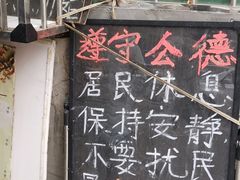 遵守公德
居民休息
保持安静,
不要扰民